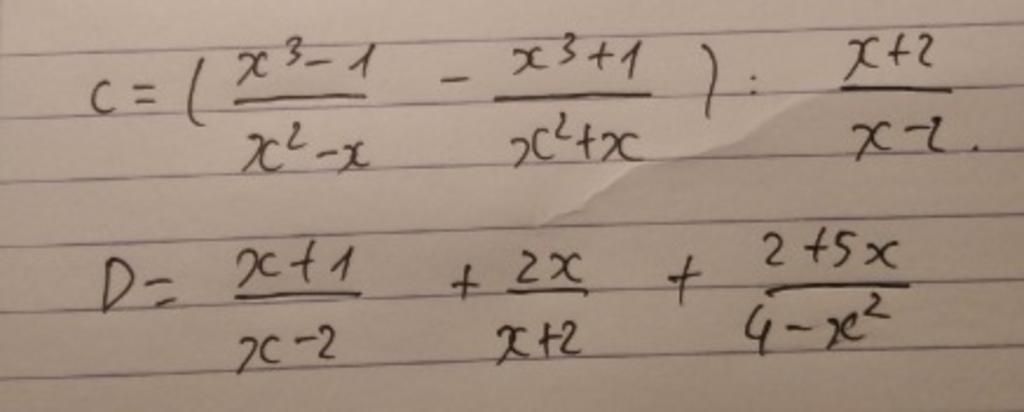 C = ( \frac{x^3 - 1}{x^2 - x} - \frac{x^3 + 1}{x^2 + x} ) : \frac{x + 2}{x - 2}.
D = \frac{x + 1}{x - 2} + \frac{2x}{x + 2} + \frac{2 + 5x}{4 - x^2}